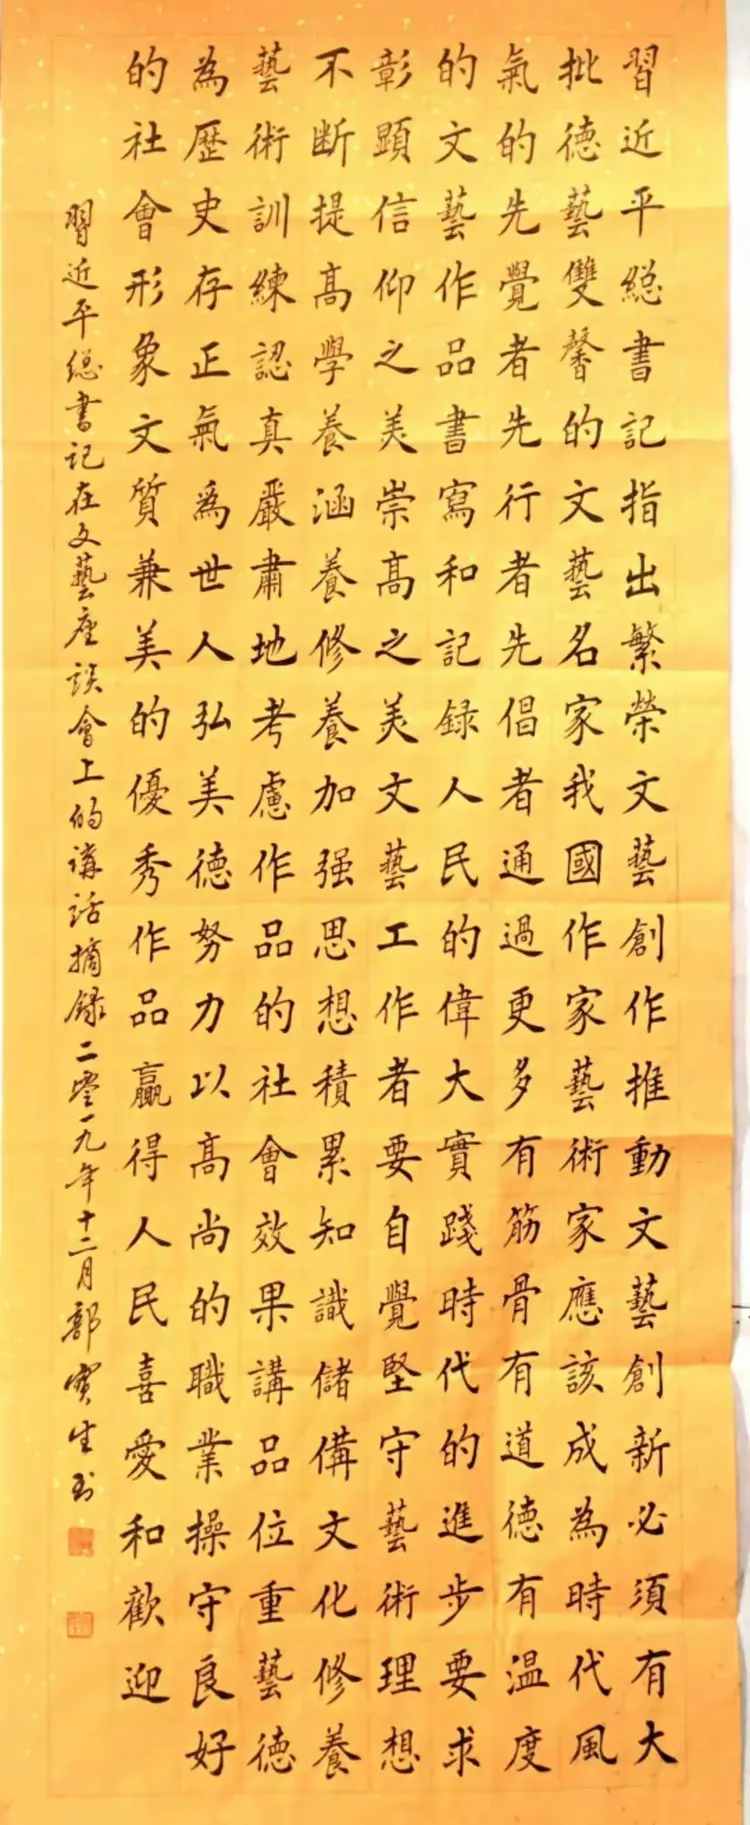 習近平総書記指出繁榮文藝創作推動文藝創新必須有大
批德藝雙馨的文藝名家我國作家藝術家應該成為時代風
氣的先覺者先行者先倡者通過更多有筋骨有道德有温度
的文藝作品書寫和記録人民的偉大實踐時代的進步要求
彰顯信仰之美崇高之美文藝工作者要自覺堅守藝術理想
不断提高學養涵養修養加强思想積累知識儲備文化修養
藝術訓練認真嚴肅地考慮作品的社會效果講品位重藝德
為歷史存正氣為世人弘美德努力以高尚的職業操守良好
的社會形象文質兼美的優秀作品贏得人民喜愛和歡迎
習近平総書记在文藝座談會上的講話摘録二零一九年十二月郭寶生书